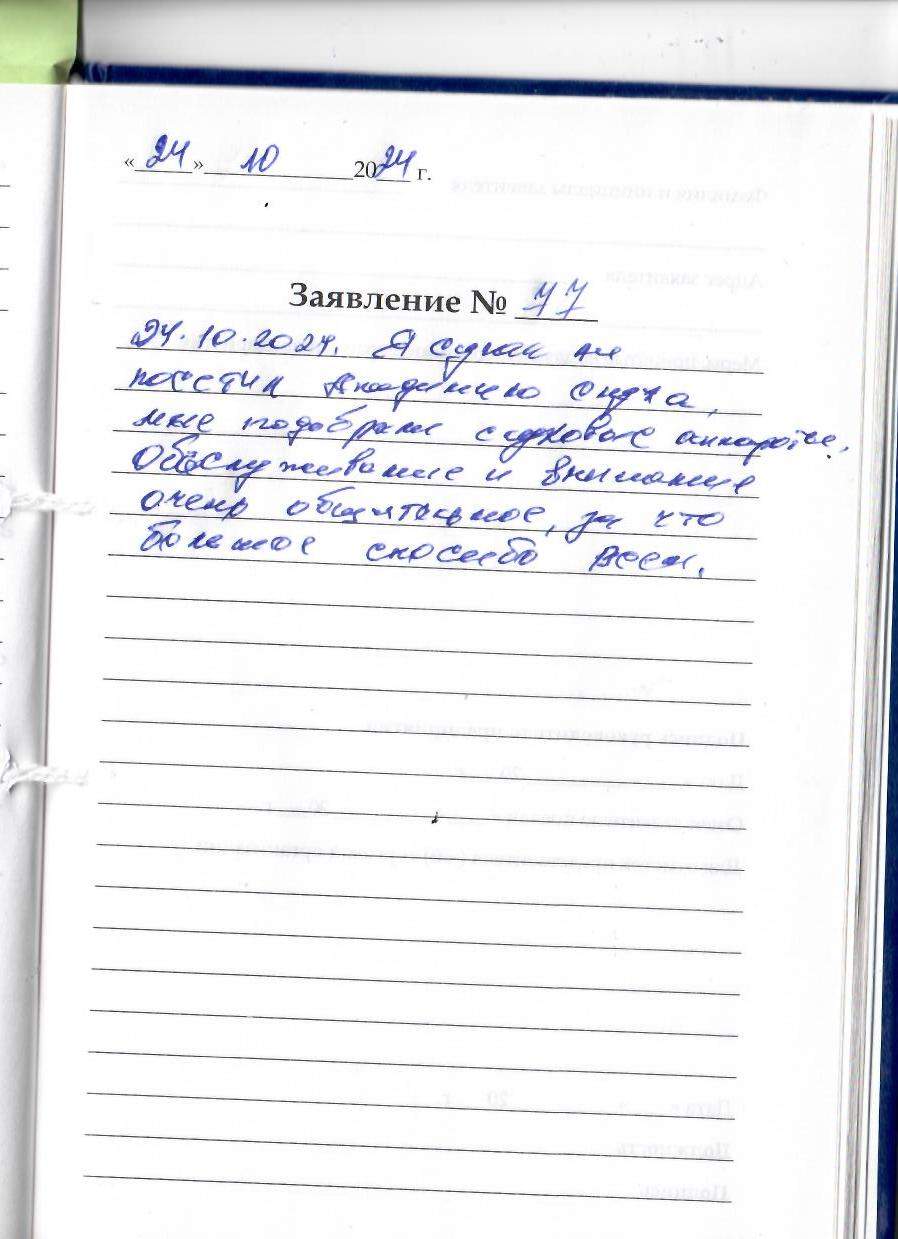 «24» 10 2024 г.
Заявление № 77
24.10.2024. Я
посетил Академию слуха,
мне подобрали слуховые аппараты.
Обслуживание и внимание
очень общительное, за что
большое спасибо всем.